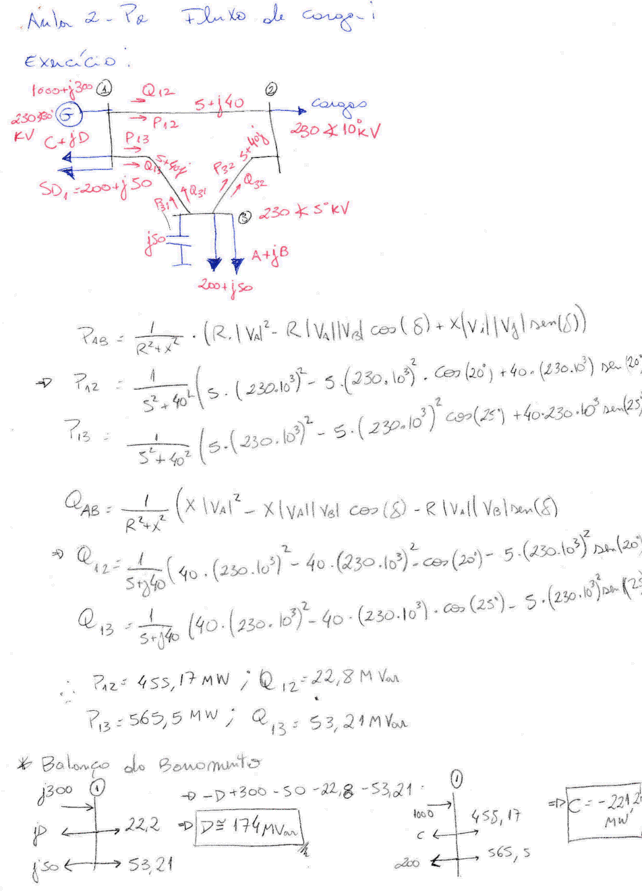 Aula 2 - P2 Fluxo de carga i
Exercício:
1000+j300
①
Q12
②
5+j40
cargas
230∡30°
G
KV
P12
230∡10°KV
C+jD
P13
Q13
5+40j
5+40j
P32
Q32
SD1=200+j50
P31
Q31
③ 230∡5°KV
j50
A+jB
200+j50
PAB = 1/(R²+X²) · (R.|VA|² - R|VA||VB| cos(δ) + X|VA||VB| sen(δ))
⇒ P12 = 1/(5²+40²) (5.(230.10³)² - 5.(230.10³)². cos(20°) + 40.(230.10³) sen(20°)
P13 = 1/(5²+40²) (5.(230.10³)² - 5.(230.10³)² cos(25°) + 40.230.10³ sen(25°
QAB = 1/(R²+X²) (X|VA|² - X|VA||VB| cos(δ) - R|VA||VB| sen(δ)
⇒ Q12 = 1/(5+j40) (40.(230.10³)² - 40.(230.10³)². cos(20°) - 5.(230.10³)² sen(20°
Q13 = 1/(5+j40) (40.(230.10³)² - 40.(230.10³). cos(25°) - 5.(230.10³)² sen(25
∴ P12 = 455,17 MW ; Q12 = 22,8 MVar
P13 = 565,5 MW ; Q13 = 53,21 MVar
* Balanço do Barramento
j300 ①
→ -D+300-50-22,8-53,21
jD 22,2
⇒ D ≅ 174 MVar
j50 53,21
①
1000
455,17
C
200 565,5
⇒ C = -221,2
MW